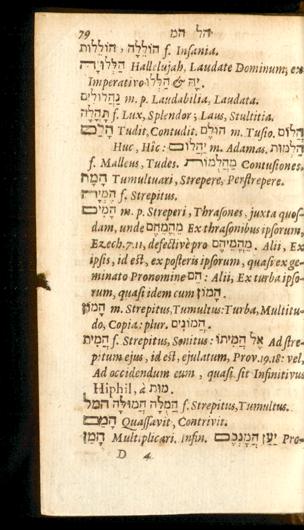 79 הל המ
הוֹלֵלָה, הוֹלֵלוּת f. Insania.
הַלְלוּיָהּ Hallelujah, Laudate Dominum, ex
Imperativo הַלְלוּ & יָהּ
m. p. Laudabilia, Laudata.
תְּהִלָּה f. Lux, Splendor; Laus, Stultitia.
הָלַם Tudit, Contudit. הוֹלֵם m. Tusio. הֲלוֹם
Huc, Hîc: יַהֲלוֹם m. Adamas. הַלְמוּת
f. Malleus, Tudes. מַהֲלֻמוֹת Contusiones.
הָמָה Tumultuari, Strepere, Perstrepere.
הֶמְיָה f. Strepitus.
הָמִים m. p. Streperi, Thrasones, juxta quos-
dam, unde מֵהֲמֵהֶם Ex thrasonibus ipsorum,
Ezech. 7. 11, defectivè pro מֵהֲמֵיהֶם. Alii, Ex
ipsis, id est, ex posteris ipsorum, quasi ex ge-
minato Pronomine הֵם: Alii, Ex turba ipso-
rum, quasi idem cum הָמוֹן.
הָמוֹן m. Strepitus, Tumultus: Turba, Multitu-
do, Copia: plur. הֲמוֹנִים.
הֶמְיַת f. Strepitus, Sonitus: אֶל הֲמִיתוֹ Ad stre-
pitum ejus, id est, ejulatum, Prov. 19. 18: vel,
Ad occidendum eum, quasi sit Infinitivus
Hiphil, à מוּת
הָמַל הֲמוּלָּה הֲמֻלָּה f. Strepitus, Tumultus.
הָמַם Quassavit, Contrivit.
הָמַן Multiplicari. Infin. יַעַן הֲמָנְכֶם Pro-
D 4